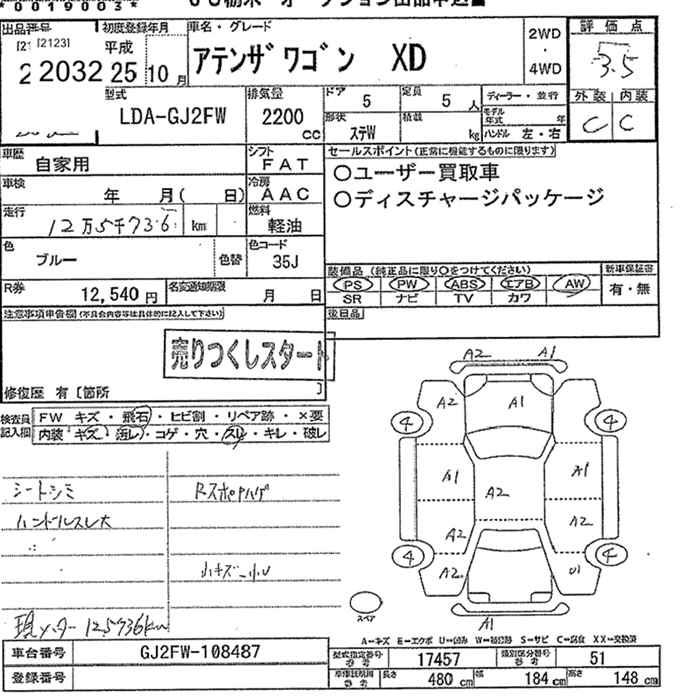 出品番号 初度登録年月 車名・グレード 2WD・4WD 評価点
[2123]
2032 平成25年10月 アテンザワゴン XD 3.5
型式 排気量 ドア 定員 ディーラー・並行 外装 内装
LDA-GJ2FW 2200cc 5 5人 C C
形状 積載 モデル年式 年
ステW kg ハンドル 左・右
車歴 自家用 シフト FAT セールスポイント(正常に機能するものに限ります)
○ユーザー買取車
○ディスチャージパッケージ
車検 年 月( 日) 冷房 AAC
走行 12万5千736 km 燃料 軽油
色 ブルー 色替 色コード 35J
装備品(純正品に限り○をつけてください) 新車保証書
PS PW ABS エアB AW 有・無
SR ナビ TV カワ
R券 12,540円 名変通知期限 月 日
後日品
注意事項申告欄(不具合内容等は具体的に記入して下さい)
売りつくしスタート
修復歴 有〔箇所 〕
検査員記入欄 FW キズ・飛石・ヒビ割・リペア跡・×要
内装 キズ・汚レ・コゲ・穴・スレ・キレ・破レ
シートシミ
ハンドルスレ大
小キズ
現メーター125736km
A2 A1
A2 A1
4 4
A1 A2 A1
A2 A2
4 4
A2 U1
スペア A1
A=キズ E=エクボ U=凹み W=補修跡 S=サビ C=腐食 XX=交換済
車台番号 GJ2FW-108487
登録番号
型式指定番号 参考 17457 類別区分番号 参考 51
車検証記載 参考 長さ 480cm 幅 184cm 高さ 148cm